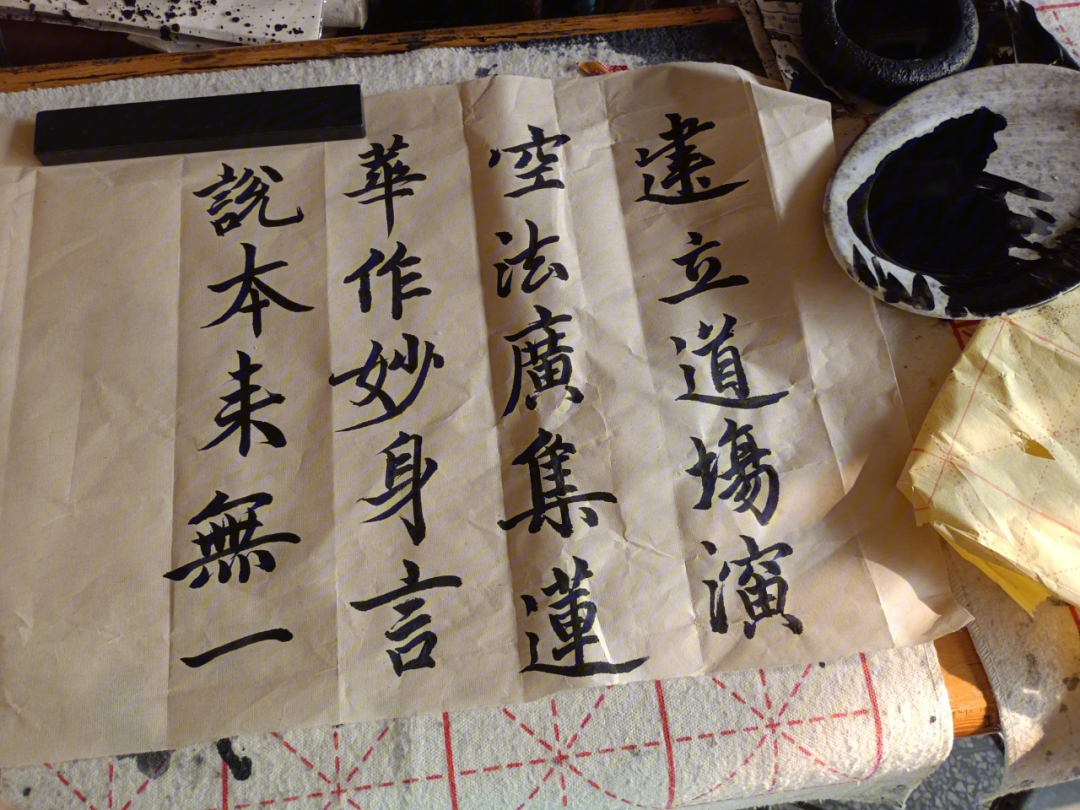 建立道場演
空法廣集蓮
華作妙身言
說本来無一